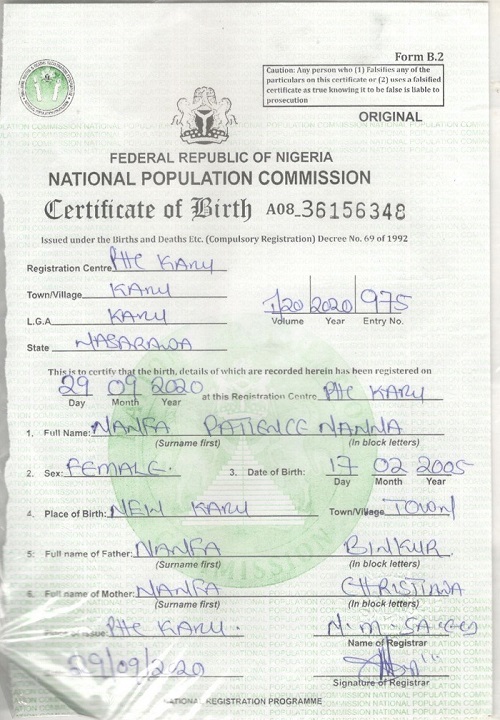 Form B.2
Caution: Any person who (1) Falsifies any of the
particulars on this certificate or (2) uses a falsified
certificate as true knowing it to be false is liable to
prosecution
ORIGINAL
FEDERAL REPUBLIC OF NIGERIA
NATIONAL POPULATION COMMISSION
Certificate of Birth A08 36156348
Issued under the Births and Deaths Etc. (Compulsory Registration) Decree No. 69 of 1992
Registration Centre PHC KARU
Town/Village KARU
L.G.A KARU
State NASARAWA
120 2020 975
Volume Year Entry No.
This is to certify that the birth, details of which are recorded herein has been registered on
29 09 2020 at this Registration Centre PHC KARU
Day Month Year
1. Full Name: NANFA PATIENCE NANNA
(Surname first) (In block letters)
2. Sex: FEMALE. 3. Date of Birth: 17 02 2005
Day Month Year
4. Place of Birth: NEW KARU Town/Village TOWN
5. Full name of Father: NANFA BINKUR
(Surname first) (In block letters)
6. Full name of Mother: NANFA CHRISTINA
(Surname first) (In block letters)
Place of Issue: PHC KARU. N. M.
Name of Registrar
29/09/2020
Signature of Registrar
NATIONAL REGISTRATION PROGRAMME